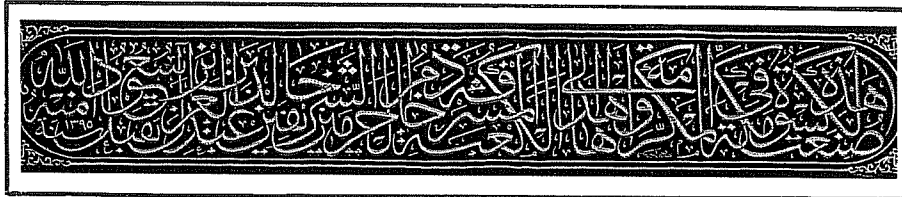 صنعت هذه الكسوة في مكة المكرمة وأهداها إلى الكعبة المشرفة خادم الحرمين الشريفين خالد بن عبد العزيز آل سعود تقبل الله منه ١٣٩٥